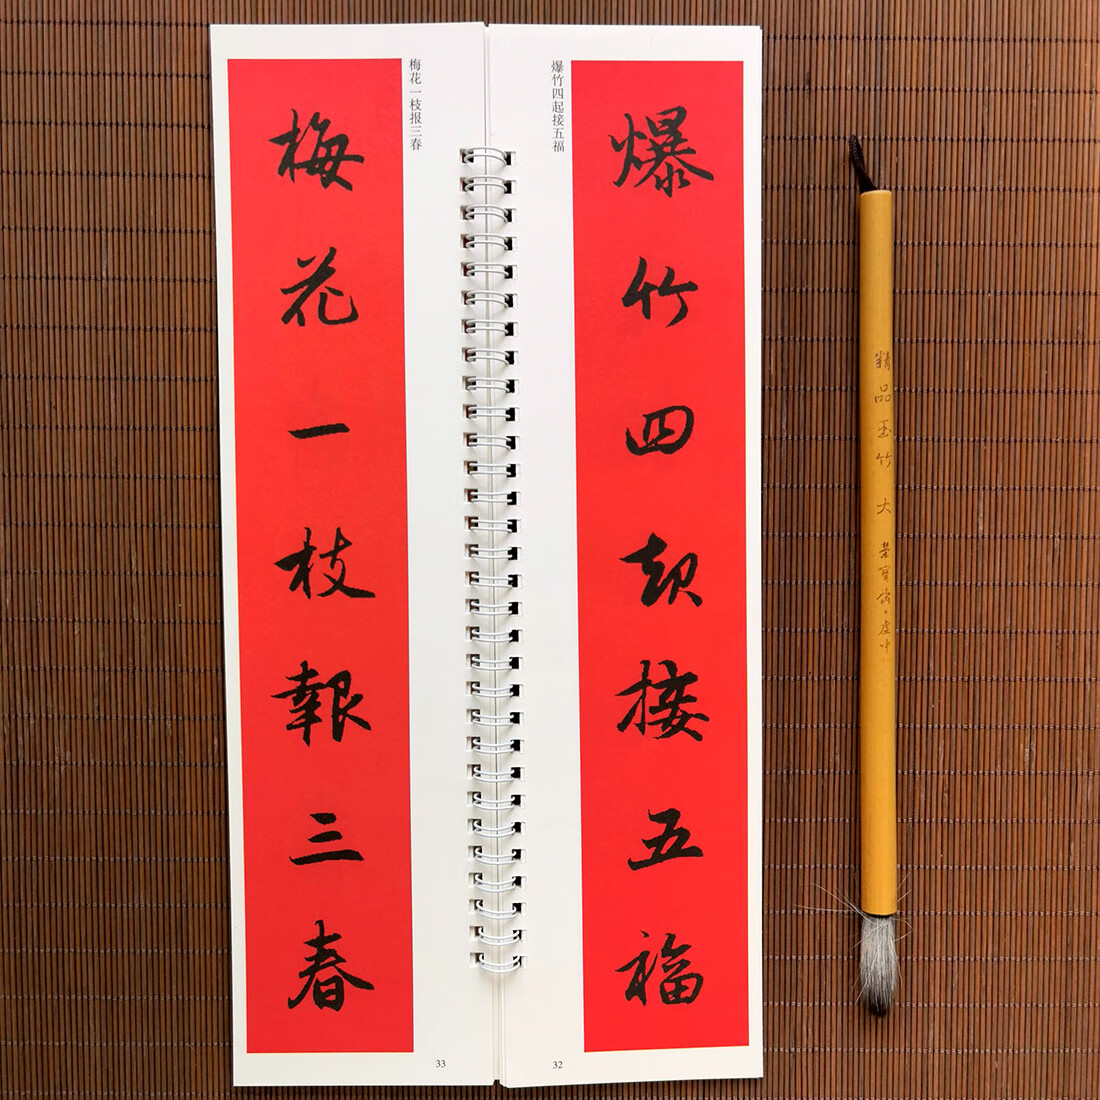 爆竹四起接五福
爆竹四起接五福
32
梅花一枝報三春
梅花一枝报三春
33
精品玉竹 大 荣宝斋·虚中